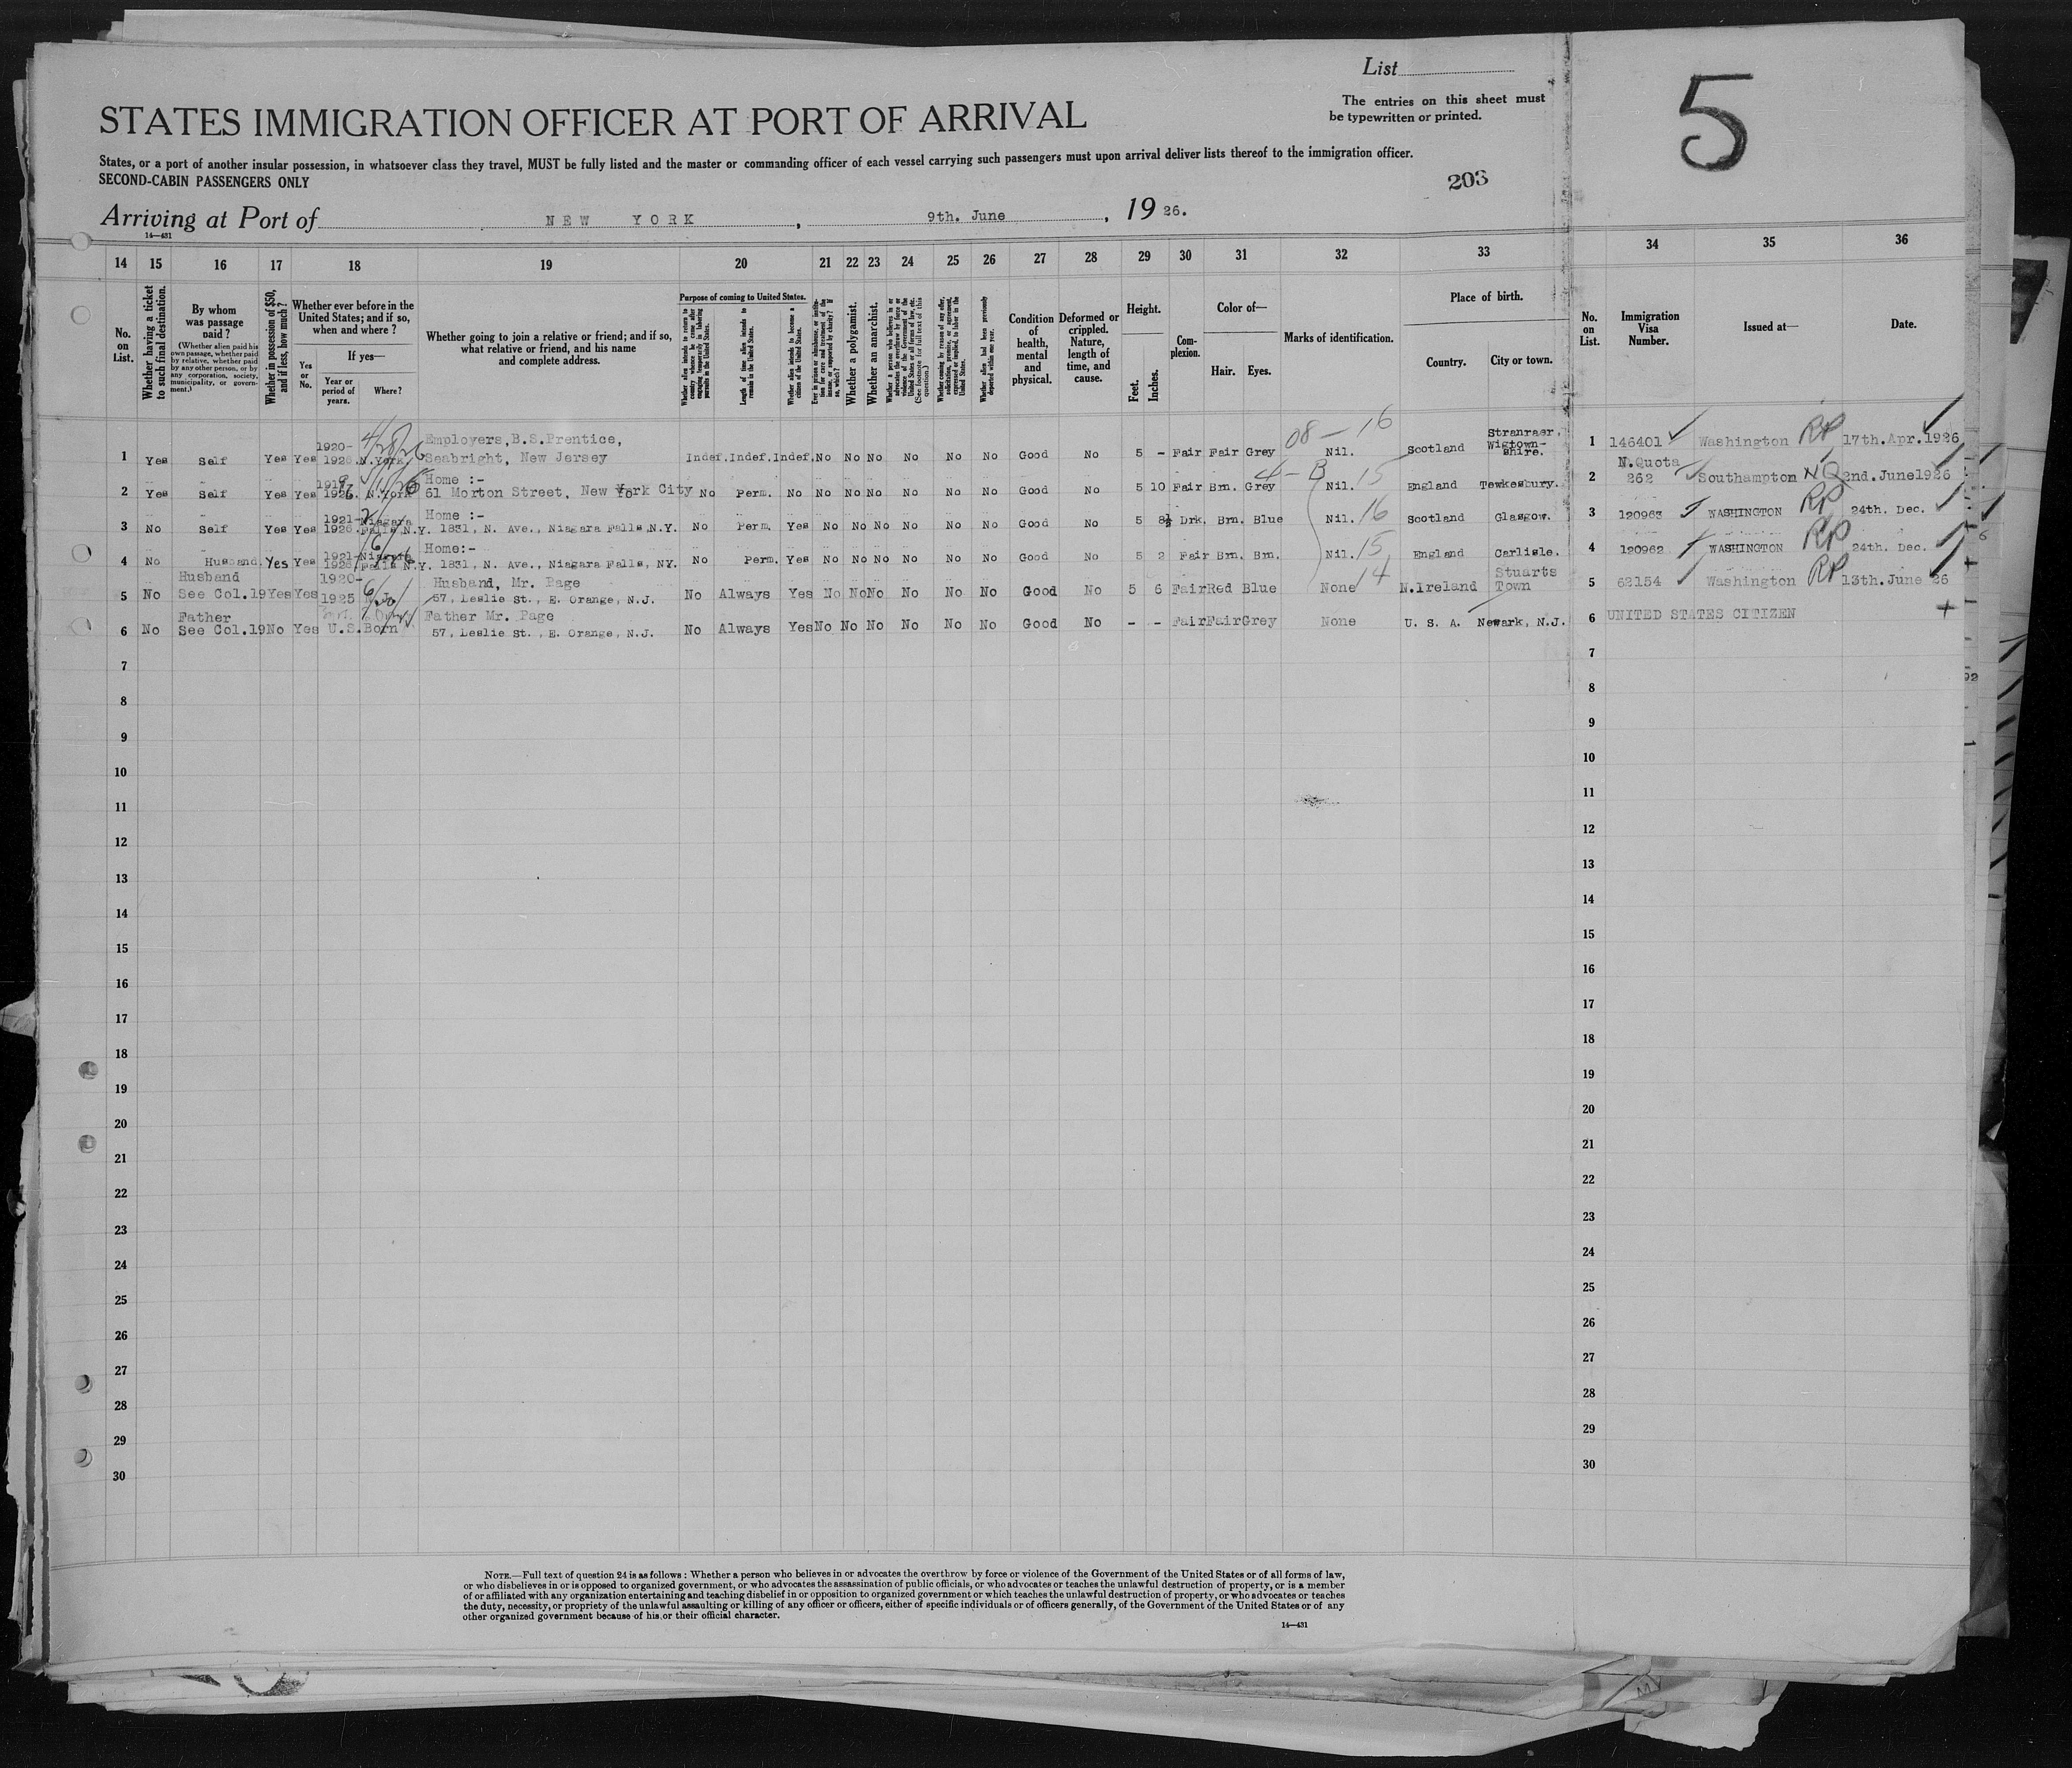 List
The entries on this sheet must
be typewritten or printed.
5
STATES IMMIGRATION OFFICER AT PORT OF ARRIVAL
States, or a port of another insular possession, in whatsoever class they travel, MUST be fully listed and the master or commanding officer of each vessel carrying such passengers must upon arrival deliver lists thereof to the immigration officer.
SECOND-CABIN PASSENGERS ONLY
203
Arriving at Port of NEW YORK, 9th. June, 1926.
14—431
14 15 16 17 18 19 20 21 22 23 24 25 26 27 28 29 30 31 32 33 34 35 36
No. on List.
Whether having a ticket to such final destination.
By whom was passage paid?
(Whether alien paid his own passage, whether paid by relative, whether paid by any other person, or by any corporation, society, municipality, or government.)
Whether in possession of $50, and if less, how much?
Whether ever before in the United States; and if so, when and where?
Yes or No.
If yes—
Year or period of years.
Where?
Whether going to join a relative or friend; and if so, what relative or friend, and his name and complete address.
Purpose of coming to United States.
Whether alien intends to return to country whence he came after engaging temporarily in laboring pursuits in the United States.
Length of time alien intends to remain in the United States.
Whether alien intends to become a citizen of the United States.
Ever in prison or almshouse, or institution for care and treatment of the insane, or supported by charity? If so, which?
Whether a polygamist.
Whether an anarchist.
(See footnote for full text of this question.)
Whether coming by reason of any offer, solicitation, promise, or agreement, expressed or implied, to labor in the United States.
Whether alien had been previously deported within one year.
Condition of health, mental and physical.
Deformed or crippled. Nature, length of time, and cause.
Height.
Feet. Inches.
Complexion.
Color of—
Hair. Eyes.
Marks of identification.
Place of birth.
Country. City or town.
No. on List.
Immigration Visa Number.
Issued at—
Date.
08 — 16
1 Yes Self Yes Yes 1920-1926 N.York 4/28/26 Employers, B.S.Prentice, Seabright, New Jersey Indef. Indef. Indef. No No No No No No Good No 5 - Fair Fair Grey Nil. Scotland Stranraer, Wigtown-shire. 1 146401 Washington RP 17th. Apr. 1926
4 — B
2 Yes Self Yes Yes 1926. N.York Home :- 61 Morton Street, New York City No Perm. No No No No No No No Good No 5 10 Fair Brn. Grey Nil. 15 England Tewkesbury. 2 N.Quota 262 Southampton NQ 2nd. June 1926
3 No Self Yes Yes 1921-1926. Niagara Falls N.Y. Home :- 1831, N. Ave., Niagara Falls, N.Y. No Perm. Yes No No No No No No Good No 5 8½ Drk. Brn. Blue Nil. 16 Scotland Glasgow. 3 120963 WASHINGTON RP 24th. Dec.
4 No Husband. Yes Yes 1921-1926 Niagara Falls N.Y. Home:- 1831, N. Ave., Niagara Falls, NY. No Perm. Yes No No No No No No Good No 5 2 Fair Brn. Brn. Nil. 15 England Carlisle. 4 120962 WASHINGTON RP 24th. Dec.
5 No Husband See Col.19 Yes Yes 1920-1925 N.J. Husband, Mr. Page 57, Leslie St., E. Orange, N.J. No Always Yes No No No No No No Good No 5 6 Fair Red Blue None 14 N.Ireland Stuarts Town 5 62154 Washington RP 13th. June 26
6 No Father See Col.19 No Yes U.S.Born Father Mr. Page 57, Leslie St., E. Orange, N.J. No Always Yes No No No No No No Good No - - Fair Fair Grey None U. S. A. Newark, N.J. 6 UNITED STATES CITIZEN
7 7
8 8
9 9
10 10
11 11
12 12
13 13
14 14
15 15
16 16
17 17
18 18
19 19
20 20
21 21
22 22
23 23
24 24
25 25
26 26
27 27
28 28
29 29
30 30
NOTE.—Full text of question 24 is as follows: Whether a person who believes in or advocates the overthrow by force or violence of the Government of the United States or of all forms of law,
or who disbelieves in or is opposed to organized government, or who advocates the assassination of public officials, or who advocates or teaches the unlawful destruction of property, or is a member
of or affiliated with any organization entertaining and teaching disbelief in or opposition to organized government or which teaches the unlawful destruction of property, or who advocates or teaches
the duty, necessity, or propriety of the unlawful assaulting or killing of any officer or officers, either of specific individuals or of officers generally, of the Government of the United States or of any
other organized government because of his or their official character.
14—431